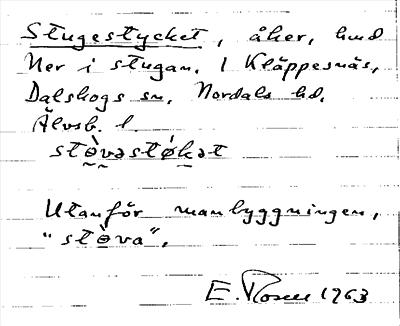 Stugestycket, åker, hmd
Ner i stugan. 1 Kläppesnäs,
Dalskogs sn, Nordals hd.
Älvsb. l.
stòvastókat
Utanför manbyggningen,
"stòva".
E. Rosell 1963